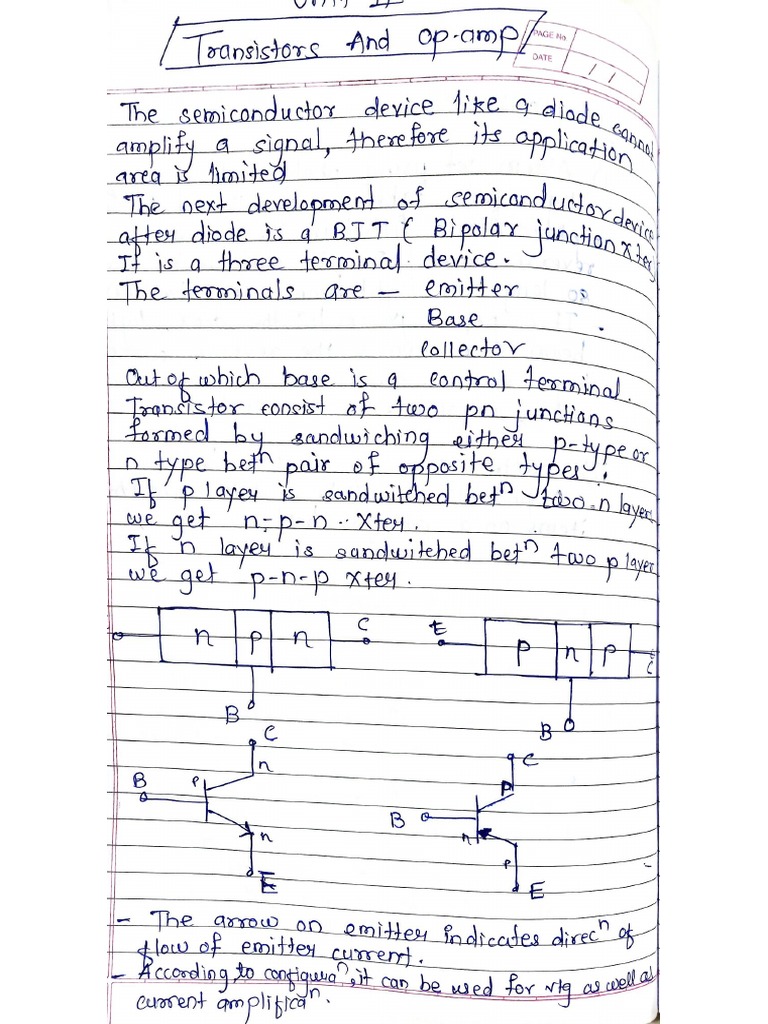 Transistors And op-amp
PAGE No
DATE
/ /
The semiconductor device like a diode cannot
amplify a signal, therefore its application
area is limited
The next development of semiconductor device
after diode is a BJT ( Bipolar junction xter
It is a three terminal device.
The terminals are - emitter
Base
collector
Out of which base is a control terminal.
Transistor consist of two pn junctions
formed by sandwiching either p-type or
n type betⁿ pair of opposite types.
If p layer is sandwitched betⁿ two n layer
we get n-p-n xter.
If n layer is sandwitched betⁿ two p layer
we get p-n-p xter.
n p n C
E p n p C
B
B
C
n
B P
n
E
C
P
B n
P
E
- The arrow on emitter indicates direcⁿ of
flow of emitter current.
- According to configuraⁿ, it can be used for vtg as well as
current amplificaⁿ.